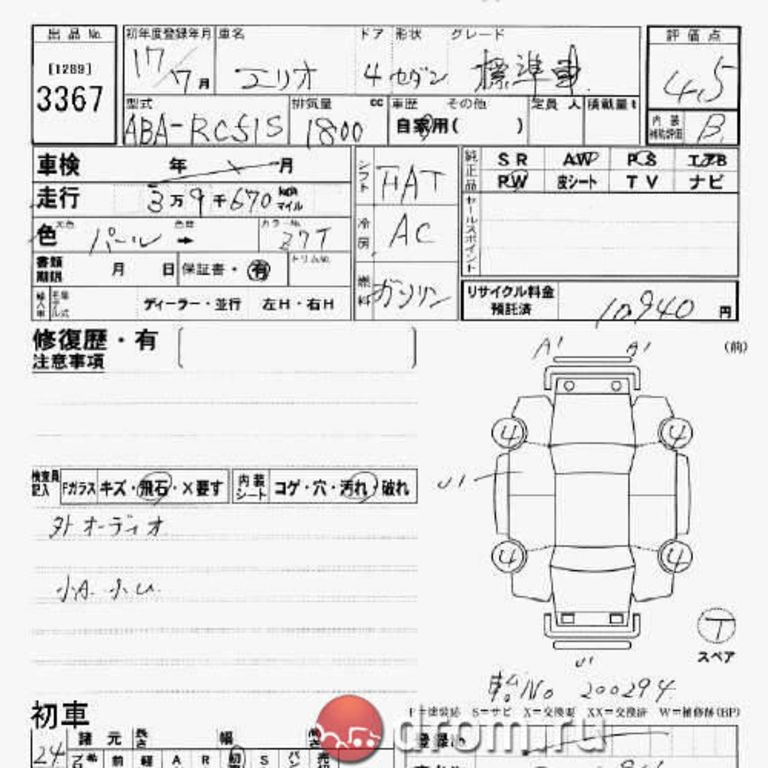 出品No. 初年度登録年月 車名 ドア 形状 グレード 評価点
[1289]
3367 17/7月 エリオ 4 セダン 標準車 4.5
型式 排気量 cc 車歴 その他 定員 人 積載量t 内装補助評価 B
ABA-RC51S 1800 自家用( )
車検 年 月 シフト FAT 純正品 SR AW PS エアB
走行 3万9千670 km マイル PW 皮シート TV ナビ
色 パール → カラーNo. Z7T 冷房 AC セールスポイント
書類期限 月 日 保証書・有 トリムNo. 燃料 ガソリン
ディーラー・並行 左H・右H リサイクル料金預託済 10,940 円
修復歴・有
注意事項
A1 A1 (前)
4 4
U1
4 4
検査員記入 Fガラス キズ・飛石・X要す 内装シート コゲ・穴・汚れ・破れ
外オーディオ
小A.小U.
T
スペア
U1
車台No 200294
初車 P=塗装済 S=サビ X=交換要 XX=交換済 W=補修跡(BP)
drom.ru
24 諸元 長さ 幅 高さ 登録No.
前 軽 A R 初 S パン